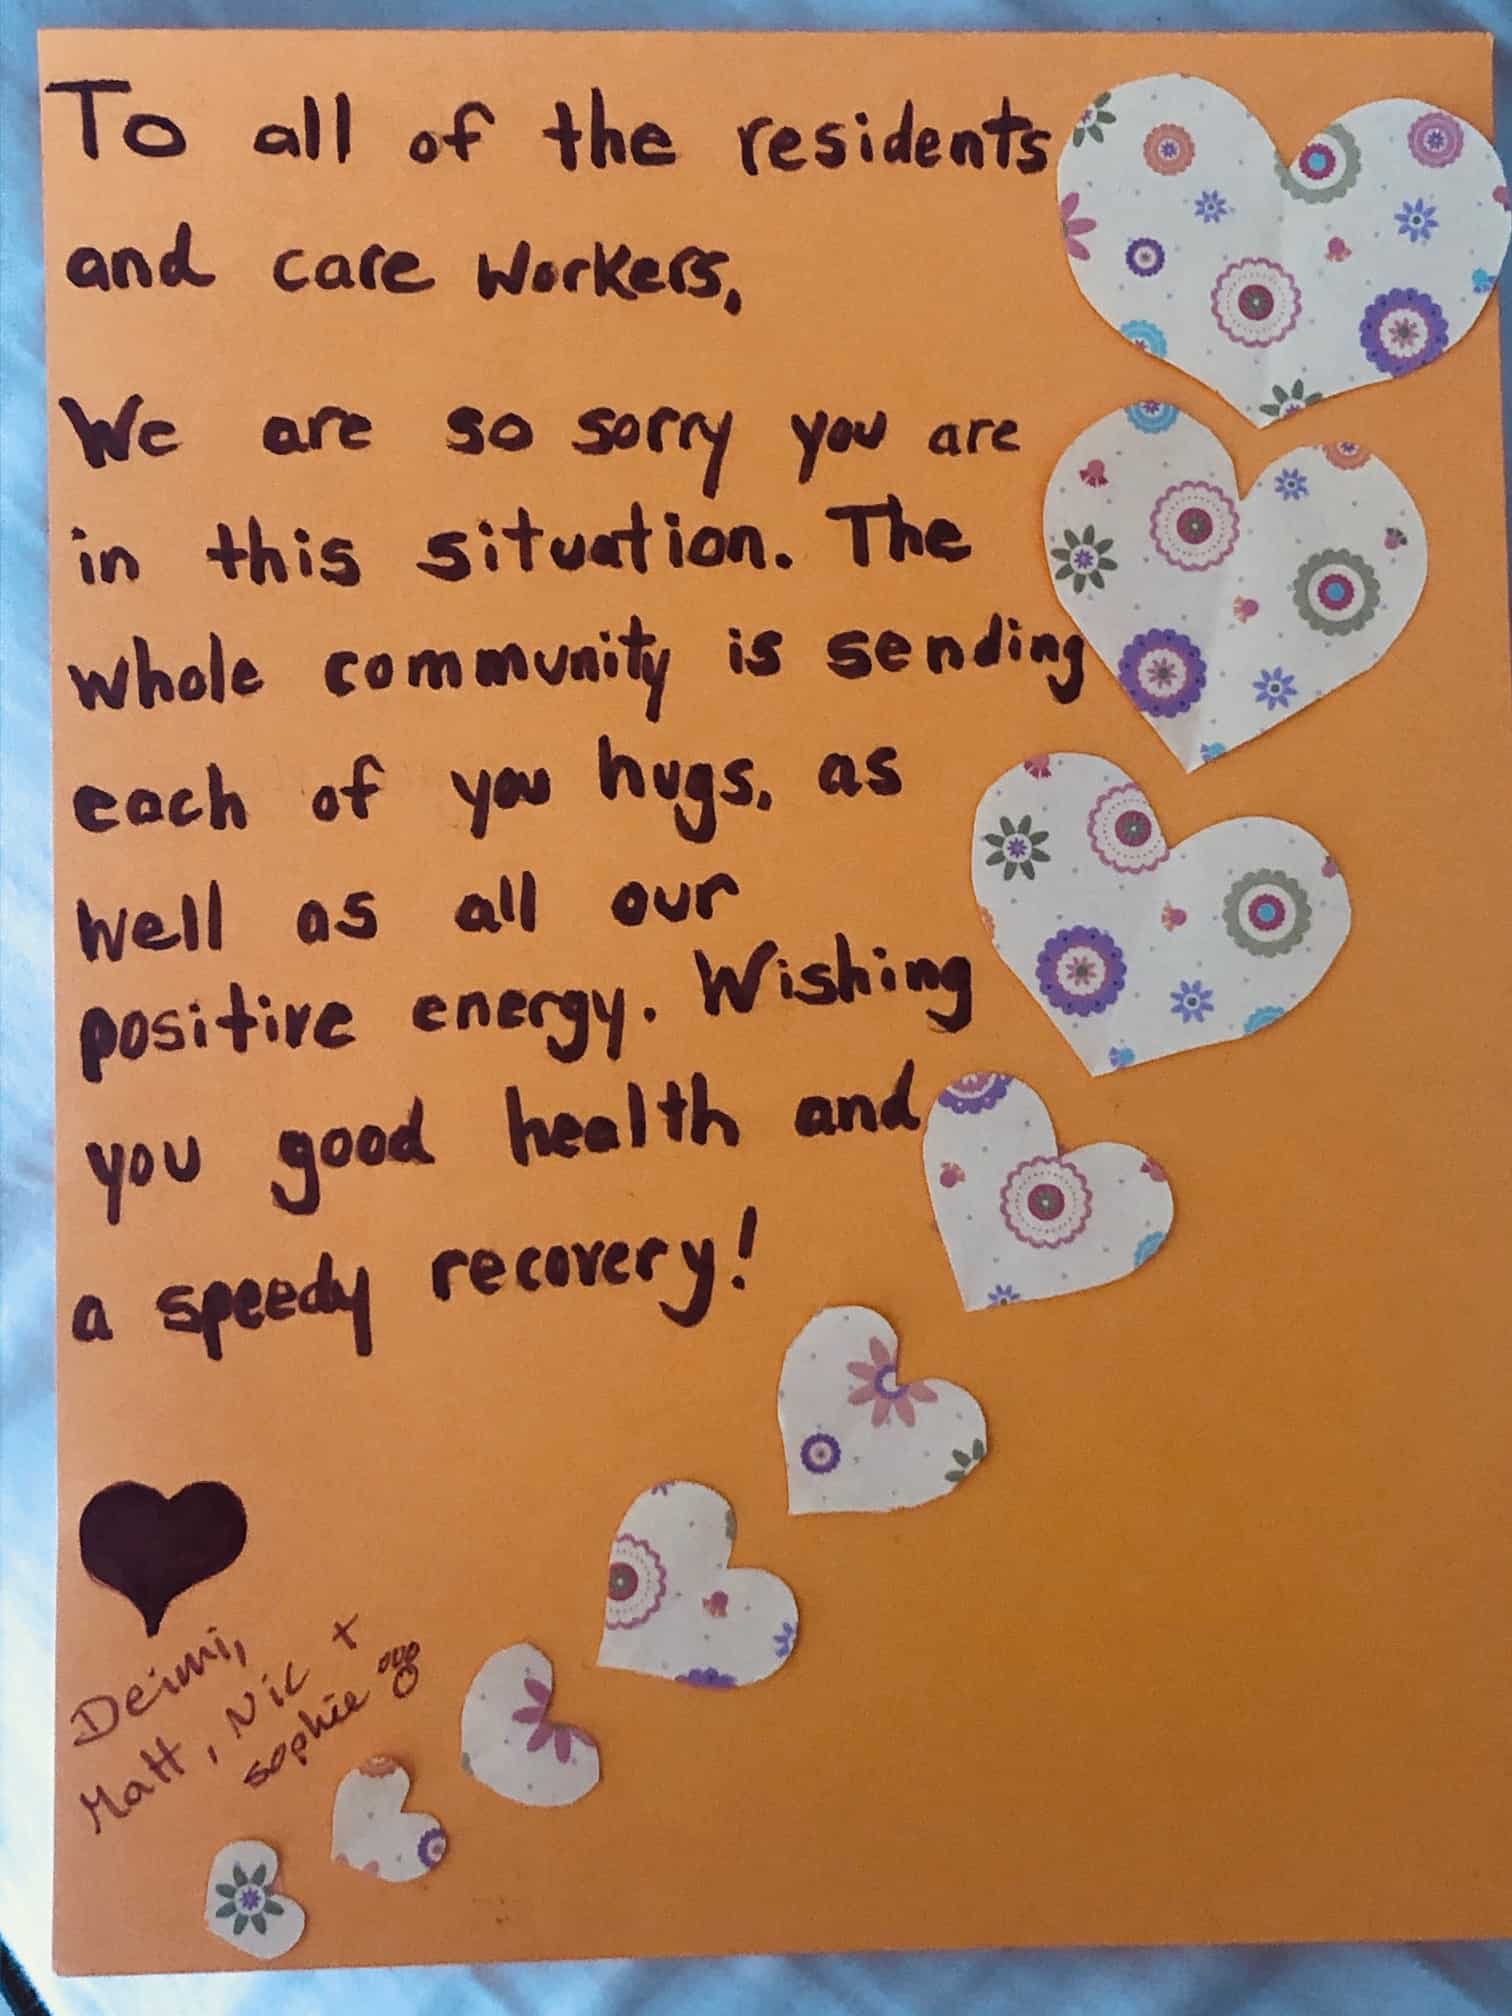 To all of the residents
and care workers,
We are so sorry you are
in this situation. The
whole community is sending
each of you hugs, as
well as all our
positive energy. Wishing
you good health and
a speedy recovery!
Deimi,
Matt, Nic +
Sophie